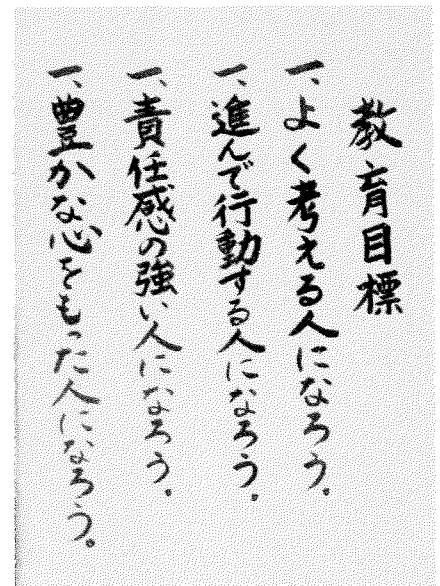 教育目標
一、よく考える人になろう。
一、進んで行動する人になろう。
一、責任感の強い人になろう。
一、豊かな心をもった人になろう。